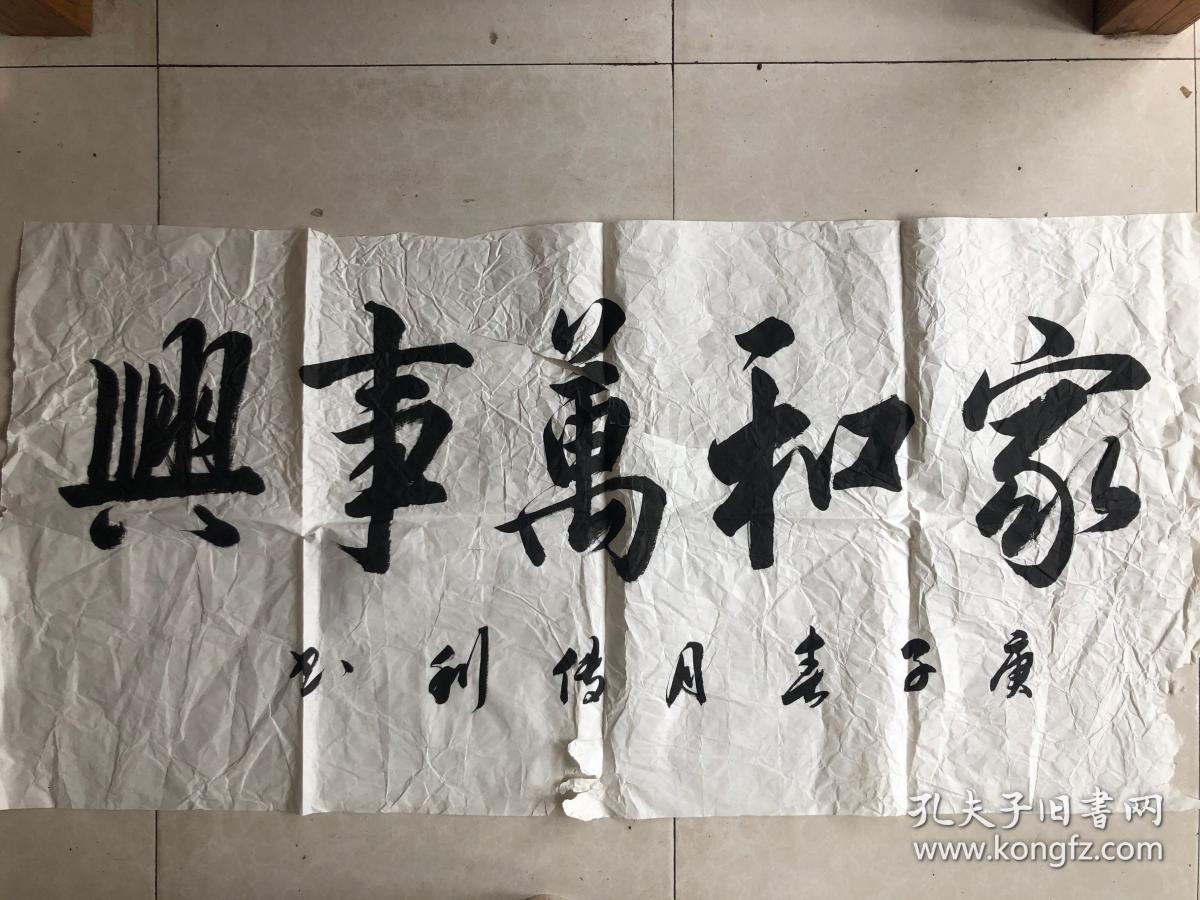 家和萬事興
庚子春月傳利书
孔夫子旧書网
www.kongfz.com